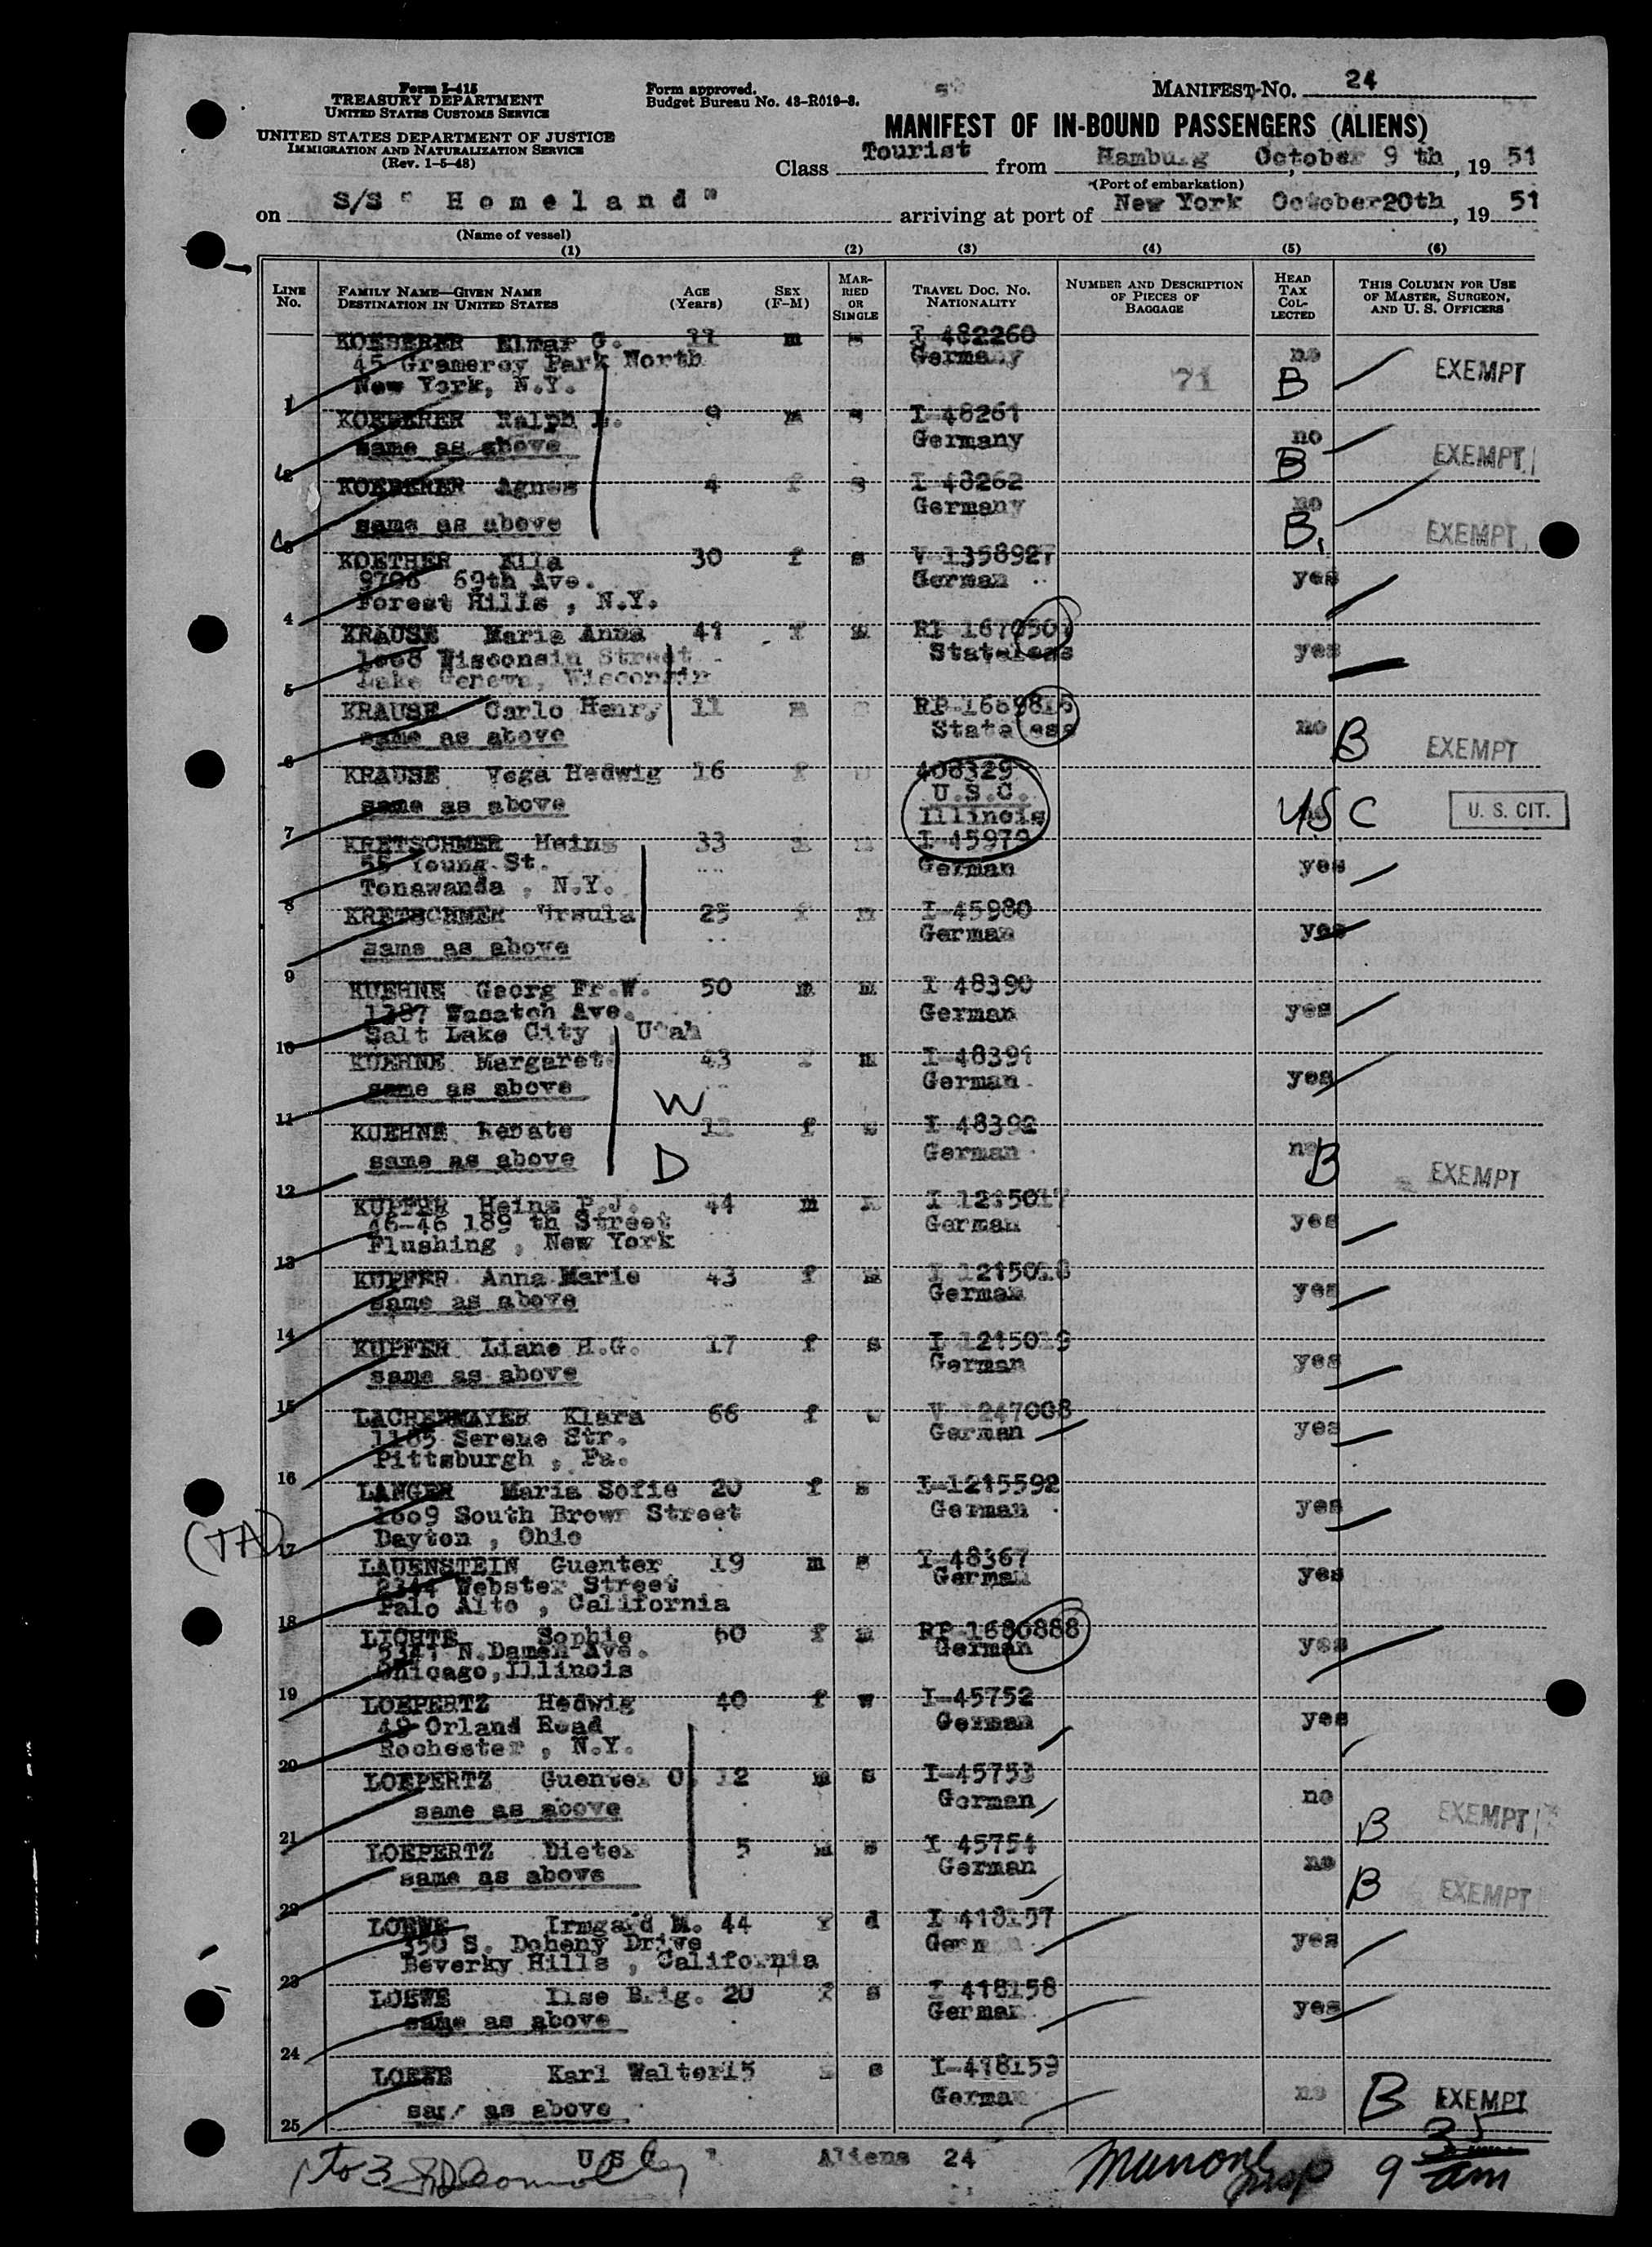 Form I-415
TREASURY DEPARTMENT
UNITED STATES CUSTOMS SERVICE
UNITED STATES DEPARTMENT OF JUSTICE
IMMIGRATION AND NATURALIZATION SERVICE
(Rev. 1-5-48)
Form approved.
Budget Bureau No. 43-R019-3.
MANIFEST NO. 24
MANIFEST OF IN-BOUND PASSENGERS (ALIENS)
Class Tourist from Hamburg October 9 th, 19 51
(Port of embarkation)
on S/S " Homeland " arriving at port of New York October 20th, 19 51
(Name of vessel)
(1) (2) (3) (4) (5) (6)
LINE No. FAMILY NAME—GIVEN NAME DESTINATION IN UNITED STATES AGE (Years) SEX (F-M) MARRIED OR SINGLE TRAVEL DOC. NO. NATIONALITY NUMBER AND DESCRIPTION OF PIECES OF BAGGAGE HEAD TAX COLLECTED THIS COLUMN FOR USE OF MASTER, SURGEON, AND U. S. OFFICERS
KOEBERER Elmar G. 11 m s I 482260
45 Gramercy Park North Germany no
1 New York, N.Y. 71 B EXEMPT
KOEBERER Ralph 9 m s I-48261
2 same as above Germany no B EXEMPT
KOEBERER Agnes 4 f s I 48262
3 same as above Germany no B EXEMPT
KOETHER Ella 30 f s V 1358927
9706 69th Ave. German yes
4 Forest Hills, N.Y.
KRAUSE Maria Anna 41 f m
Wisconsin Street Stateless yes
5 Lake Geneva, Wisconsin
KRAUSE Carlo Henry 11
6 same as above Stateless no B EXEMPT
KRAUSE Vega Hedwig 16 f 408329
U.S.C.
7 same as above Illinois USC U. S. CIT.
KRETSCHMER Heinz 33 I-45979
55 Young St. German yes
8 Tonawanda, N.Y.
KRETSCHMER Ursula 25 f m I-45980
9 same as above German yes
KUEHNE Georg Fr.W. 50 m m I 48390
1387 Wasatch Ave. German yes
10 Salt Lake City, Utah
KUEHNE Margarete 43 f m I-48391
11 same as above W German yes
KUEHNE Renate 11 f s I 48392
12 same as above D German no B EXEMPT
KUPFER Heinz P.J. 44 m I 1215017
46-46 189 th Street German yes
13 Flushing, New York
KUPFER Anna Marie 43 f m I 1215018
14 same as above German yes
KUPFER Liane H.G. 17 f s I 1215019
15 same as above German yes
LACHERMAYER Klara 66 f w V 1247008
1165 Serene Str. German yes
16 Pittsburgh, Pa.
LANGER Maria Sofie 20 f s I-1215592
1609 South Brown Street German yes
17 Dayton, Ohio
LAUENSTEIN Guenter 19 m s I-48367
2344 Webster Street German yes
18 Palo Alto, California
LICHTE Sophie 60 f m RP 1680888
5347 N.Damen Ave. German yes
19 Chicago, Illinois
LOEPERTZ Hedwig 40 f w I-45752
49 Orland Road German yes
20 Rochester, N.Y.
LOEPERTZ Guenter O. 12 m s I-45753
21 same as above German no B EXEMPT
LOEPERTZ Dieter 5 m s I 45754
22 same as above German no B EXEMPT
LOEWE Irmgard M. 44 f d I 418157
350 S. Doheny Drive German yes
23 Beverky Hills, California
LOEWE Ilse Brig. 20 f s I 418158
24 same as above German yes
LOEWE Karl Walter 15 s I-418159
25 same as above German no B EXEMPT
USC Aliens 24
9 35 am